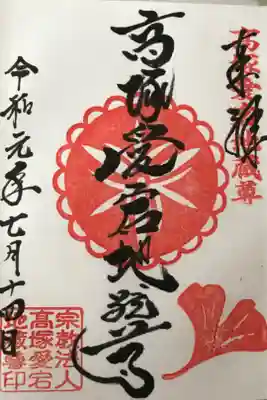 奉拝
高塚愛宕地蔵尊
高塚愛宕地蔵尊
令和元年七月十四日
宗教法人
高塚愛宕
地蔵尊印